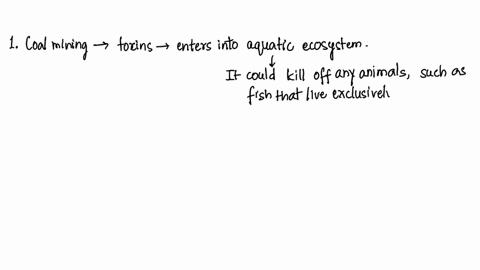 1. Coal mining → toxins → enters into aquatic ecosystem.
↓
It could kill off any animals, such as
fish that live exclusivel